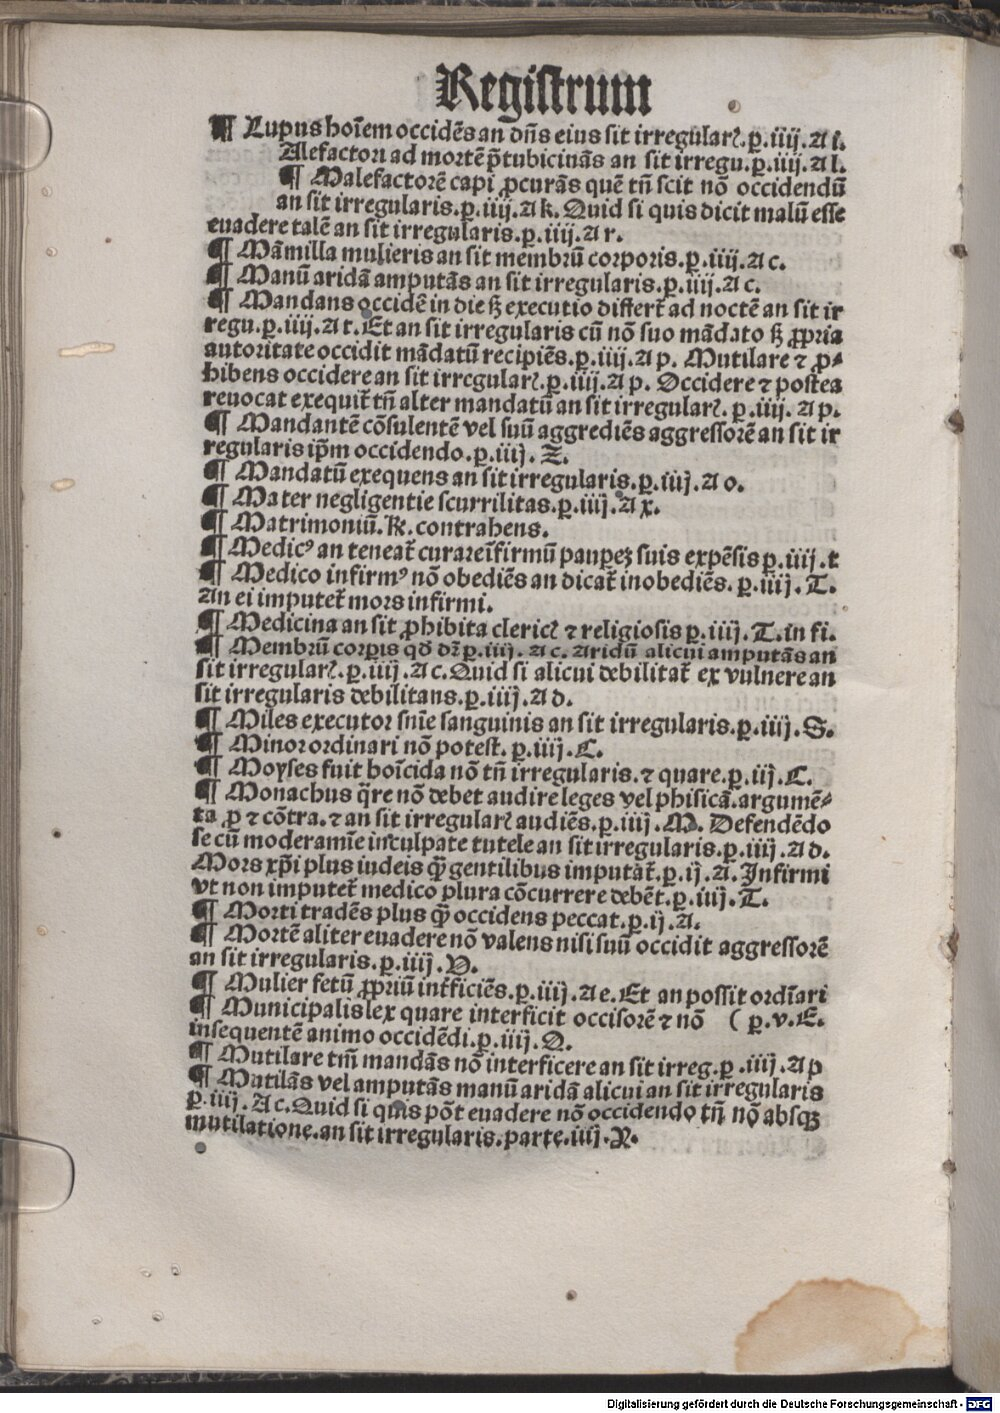 Registrum
¶ Lupus hoīem occidēs an dn̄s eius sit irregularꝭ.ꝑ.iiij.A i.
Alefactori ad mortē p̄tubicinās an sit irregu.ꝑ.iiij.A l.
¶ Malefactorē capi ꝓcurās quē tn̄ scit nō occidendū
an sit irregularis.ꝑ.iiij.A k. Quid si quis dicit malū esse
euadere talē an sit irregularis.ꝑ.iiij.A r.
¶ Māmilla mulieris an sit membrū corporis.ꝑ.iiij.A c.
¶ Manū aridā amputās an sit irregularis.ꝑ.iiij.A c.
¶ Mandans occidē in die ſꝫ executio differt̄ ad noctē an sit ir
regu.ꝑ.iiij.A t. Et an sit irregularis cū nō suo mādato ſꝫ ꝓpria
autoritate occidit mādatū recipiēs.ꝑ.iiij.A p. Mutilare ⁊ ꝓ-
hibens occidere an sit irregularꝭ.ꝑ.iiij.A p. Occidere ⁊ postea
reuocat exequit̄ tn̄ alter mandatū an sit irregularꝭ. ꝑ.iiij. A p.
¶ Mandantē cōsulentē vel suū aggrediēs aggressorē an sit ir
regularis ip̄m occidendo.ꝑ.iiij. Z.
¶ Mandatū exequens an sit irregularis.ꝑ.iiij.A o.
¶ Mater negligentie scurrilitas.ꝑ.iiij.A x.
¶ Matrimoniū.K. contrahens.
¶ Medicꝰ an teneat̄ curare īfirmū pauꝑeꝫ suis expēsis ꝑ.iiij.t
¶ Medico infirmꝰ nō obediēs an dicat̄ inobediēs. ꝑ.iiij.T.
An ei imputet̄ mors infirmi.
¶ Medicina an sit ꝓhibita clericꝭ ⁊ religiosis ꝑ.iiij.T.in fi.
¶ Membrū corꝑis qd̄ dr̄ ꝑ.iiij.A c. Aridū alicui amputās an
sit irregularꝭ.ꝑ.iiij.A c. Quid si alicui debilitat̄ ex vulnere an
sit irregularis debilitans.ꝑ.iiij.A d.
¶ Miles executor sn̄ie sanguinis an sit irregularis.ꝑ.iiij.S.
¶ Minor ordinari nō potest. ꝑ.iiij.C.
¶ Moyses fuit hoīcida nō tn̄ irregularis.⁊ quare.ꝑ.iij.C.
¶ Monachus q̄re nō debet audire leges vel phisicā.argumē-
ta ꝓ ⁊ cōtra.⁊ an sit irregularꝭ audiēs.ꝑ.iiij.M. Defendēdo
se cū moderamīe inculpate tutele an sit irregularis.ꝑ.iiij.A d.
Mors xp̄i plus iudeis q̄ꝫ gentilibus imputāt̄.ꝑ.ij.A. Infirmi
vt non imputet̄ medico plura cōcurrere debēt.ꝑ.iiij.T.
¶ Morti tradēs plus q̄ꝫ occidens peccat.ꝑ.ij.A.
¶ Mortē aliter euadere nō valens nisi suū occidit aggressorē
an sit irregularis.ꝑ.iiij.V.
¶ Mulier fetū ꝓpriū int̄ficiēs.ꝑ.iiij.A e. Et an possit ordīari
¶ Municipalis lex quare interficit occisorē ⁊ nō ( ꝑ.v.E.
insequentē animo occidēdi.ꝑ.iiij.Q.
¶ Mutilare tm̄ mandās nō interficere an sit irreg.ꝑ.iiij.A p
¶ Mutilās vel amputās manū aridā alicui an sit irregularis
ꝑ.iiij.A c. Quid si quis pōt euadere nō occidendo tn̄ nō absqꝫ
mutilatione.an sit irregularis.parte.iiij.X.
Digitalisierung gefördert durch die Deutsche Forschungsgemeinschaft - DFG